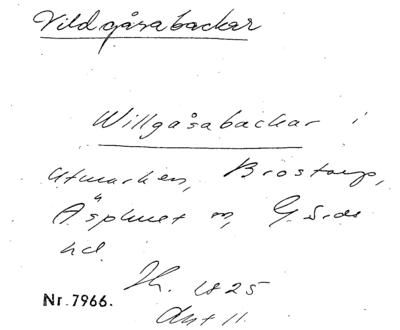 Vildgåsabackar
Willgåsabackar i
utmarken, Bröstorp,
Äsphult sn, Gärds
hd.
Nr. 7966.
1825
Akt 11.